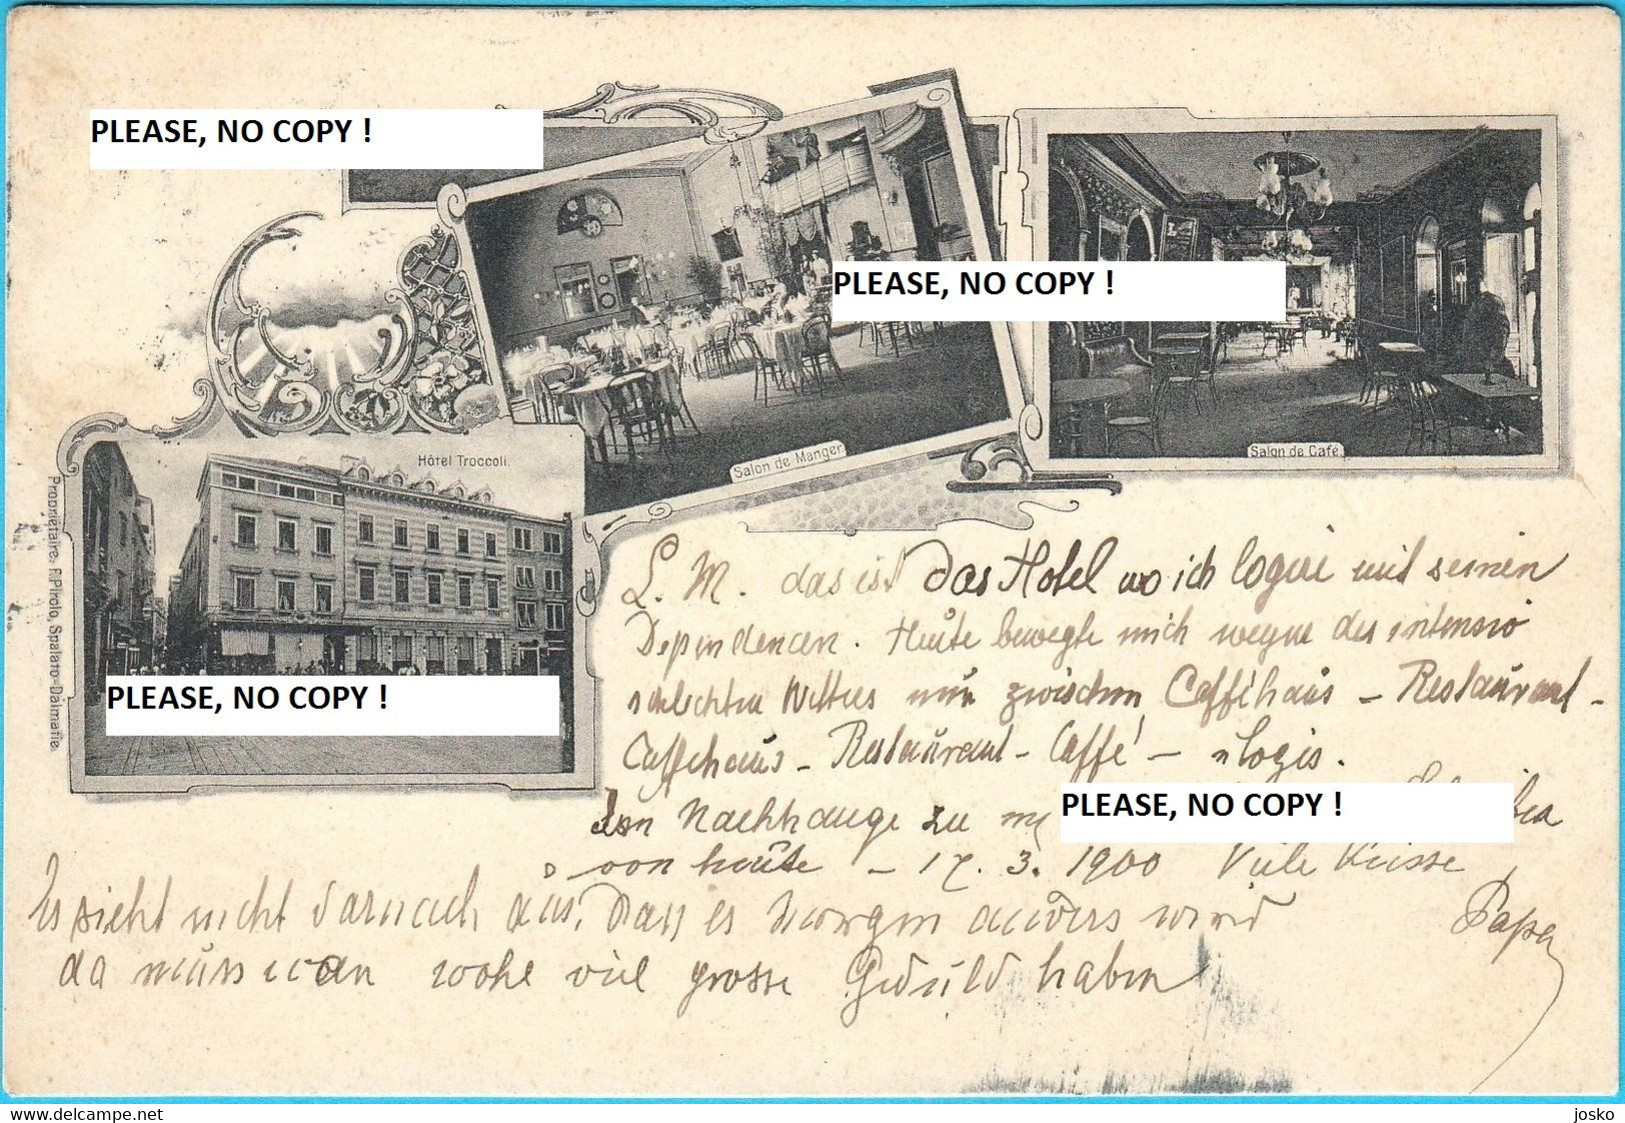 PLEASE, NO COPY !
PLEASE, NO COPY !
Salon de Manger.
Salon de Café.
Hôtel Troccoli.
Propriétaire: F. Pirolo, Spalato-Dalmatie.
PLEASE, NO COPY !
L. M. das ist das Hotel wo ich logire mit seinen
Dependencen. Heute bewegte mich wegen des intensiv
schlechten Wetters nur zwischen Caffehaus – Restaurant –
Caffehaus – Restaurant – Caffé – Logis.
PLEASE, NO COPY !
Nachhauge zu
von heute – 17. 3. 1900 Viele Küsse
Papa
Es sieht nicht darnach aus, dass es morgen anders wird
da muss man wohl viel grosse Geduld haben
delcampe.net
josko